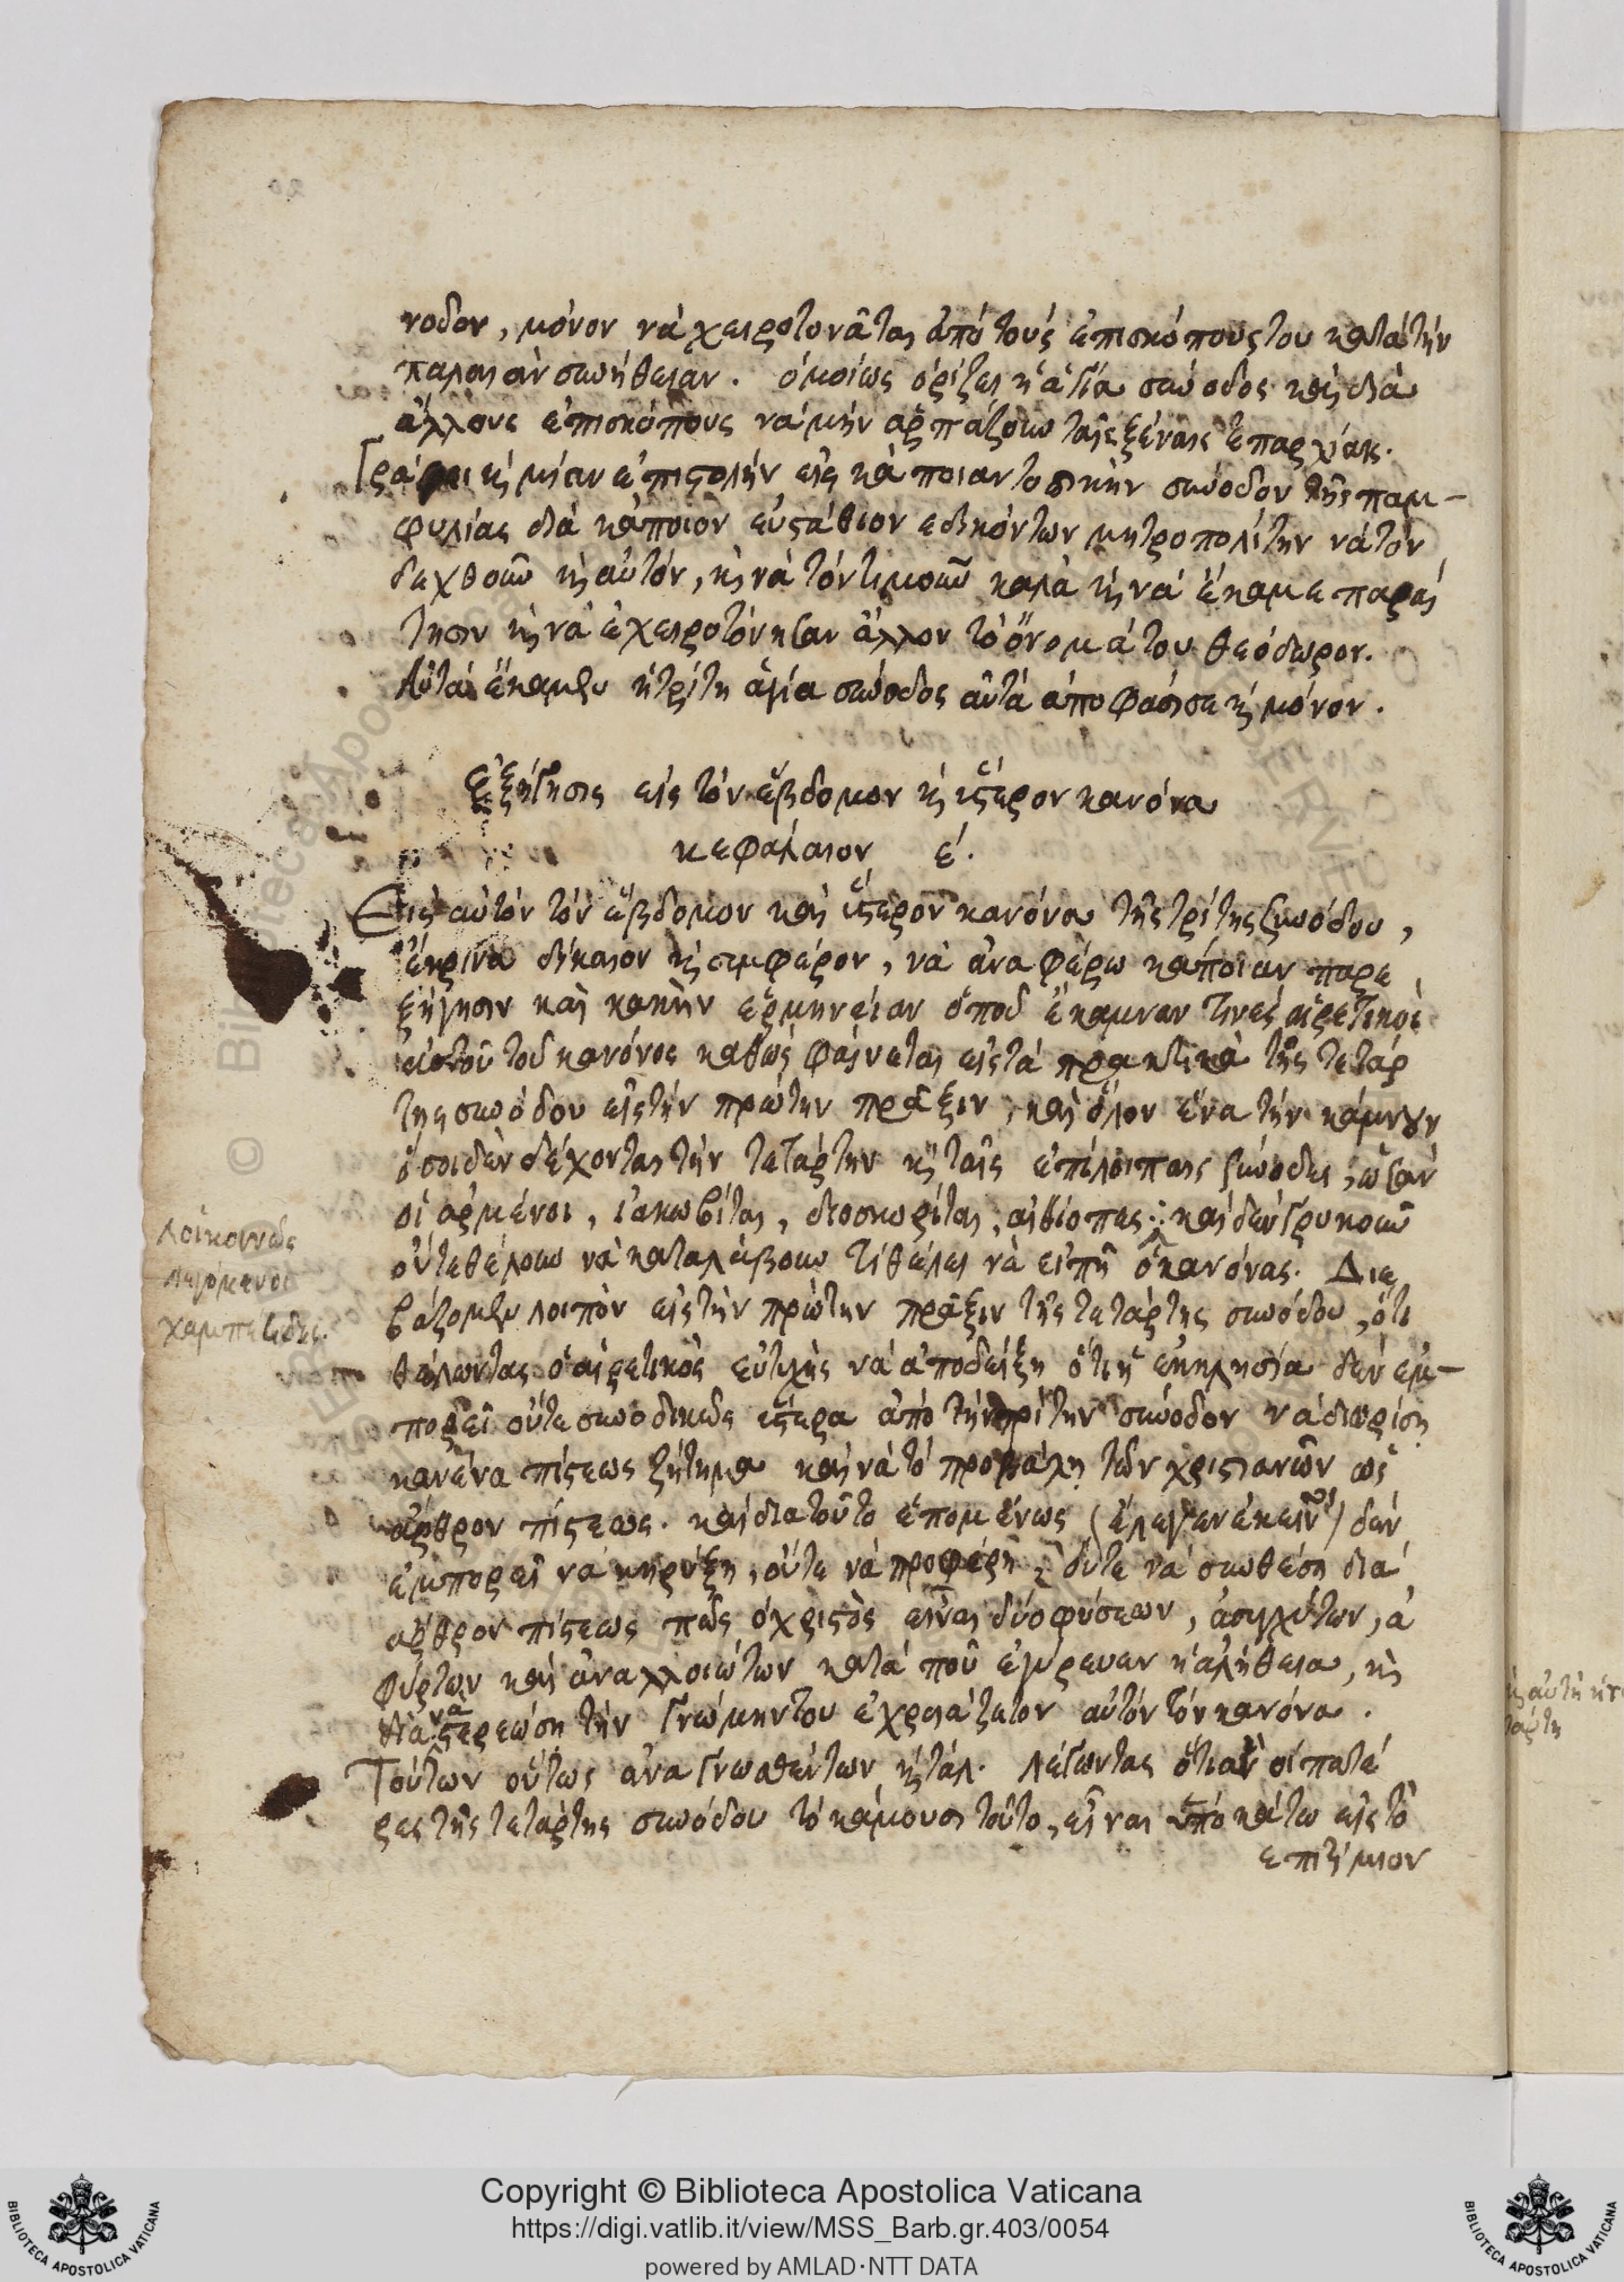 νοδον, μόνον νὰ χειροτονᾶται ἀπὸ τοὺς ἐπισκόπους του κατὰ τὴν
παλαιὰν συνήθειαν. ὁμοίως ὁρίζει ἡ ἁγία σύνοδος καὶ διὰ
ἄλλους ἐπισκόπους νὰ μὴν ἁρπάζουν ταῖς ξέναις ἐπαρχίαις.
Γράφει κ̀ μίαν ἐπιστολὴν εἰς κάποιαν τοπικὴν σύνοδον τῆς παμ-
φυλίας διὰ κάποιον εὐστάθιον ἐδικόντων μητροπολίτην νὰ τὸν
δεχθοῦν κ̀ αὐτόν, κ̀ νὰ τὸν τιμοῦν καλὰ κ̀ νὰ ἔκαμε παραί
τησιν κ̀ νὰ ἐχειροτόνησαν ἄλλον τὸ ὄνομά του θεόδωρον.
Αὐτὰ ἔκαμεν ἡ τρίτη ἁγία σύνοδος αὐτὰ ἀποφάσισε κ̀ μόνον.
Ἐξήγησις εἰς τὸν ἕβδομον κ̀ ὕστερον κανόνα
κεφάλαιον ε΄.
Εἰς αὐτὸν τὸν ἕβδομον καὶ ὕστερον κανόνα τῆς τρίτης συνόδου,
ἔκρινα δίκαιον κ̀ συμφέρον, νὰ ἀναφέρω κάποιαν παρε
ξήγησιν καὶ κακὴν ἑρμηνείαν ὁποῦ ἔκαμναν τινὲς αἱρετικοὶ
αὐτοῦ τοῦ κανόνος καθὼς φαίνεται εἰς τὰ πρακτικὰ τῆς τετάρ
της συνόδου εἰς τὴν πρώτην πρᾶξιν, καὶ ὅλον ἕνα τὴν κάμνουν
ὅσοι δὲν δέχονται τὴν τετάρτην κ̀ ταῖς ἐπίλοιπαις σύνοδες, ὡσὰν
οἱ ἀρμένοι, ἰακωβίται, διοσκορίται, αἰθίοπες. καὶ δὲν γρυκοῦν
οὔτε θέλουν νὰ καταλάβουν τί θέλει νὰ εἰπῇ ὁ κανόνας. Δια
βάζομεν λοιπὸν εἰς τὴν πρώτην πρᾶξιν τῆς τετάρτης συνόδου, ὅτι
θέλωντας ὁ αἱρετικὸς εὐτυχὴς νὰ ἀποδείξῃ ὅτι ἡ ἐκκλησία δὲν ἐμ-
πορεῖ οὔτε συνοδικῶς ὕστερα ἀπὸ τὴν τρίτην σύνοδον νὰ διορίσῃ
κανένα πίστεως ζήτημα καὶ νὰ τὸ προβάλῃ τῶν χριστιανῶν ὡς
ἄρθρον πίστεως. καὶ διὰ τοῦτο ἑπομένως (ἔλεγεν ἐκεῖνος) δὲν
ἐμπορεῖ νὰ κηρύξῃ, οὔτε νὰ προφέρῃ, οὔτε νὰ συνθέσῃ διὰ
ἄρθρον πίστεως πῶς ὁ χριστὸς εἶναι δύο φύσεων, ἀσυγχύτων, ἀ
φύρτων καὶ ἀναλλοιώτων κατὰ ποῦ ἐγύρευεν ἡ ἀλήθεια, κ̀
διὰ νὰ στερεώσῃ τὴν γνώμην του ἐχρειάζετον αὐτὸν τὸν κανόνα.
Τούτων οὕτως ἀναγνωσθέντων κ̀ τάλ. λέγωντας ὅτι ἂν οἱ πατέ
ρες τῆς τετάρτης συνόδου τὸ κάμουσι τοῦτο, εἶναι ὑπὸ κάτω εἰς τὸ
ἐπιτίμιον
λοίκοινῶς
λεγόμενοι
χαμπετιδες.